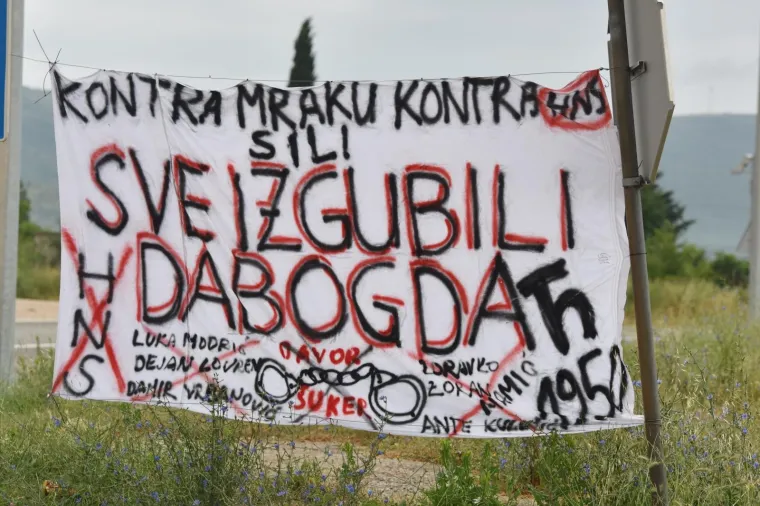 KONTRA MRAKU KONTRA HNS
SILI
SVE IZGUBILI
DABOGDA
Ћ
HNS
1950
LUKA MODRIĆ
DEJAN LOVREN
DAMIR VRBANOVIĆ
DAVOR
ŠUKER
ZDRAVKO
ZORAN
MAMIĆ
ANTE